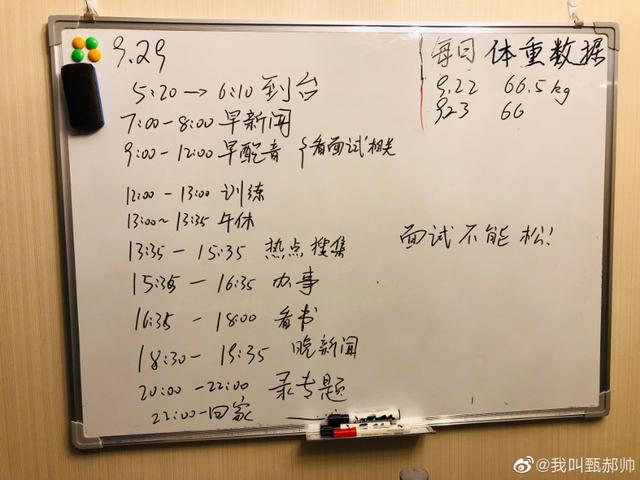 9.29
5:20→6:10 到台
7:00-8:00 早新闻
9:00-12:00 早配音 看面试相关
12:00-13:00 训练
13:00~13:35 午休
13:35-15:35 热点搜集
15:35-16:35 办事
16:35-18:00 看书
18:30-19:35 晚新闻
20:00-22:00 录专题
22:00-回家
每日体重数据
9.22 66.5kg
9.23 66
面试不能松!
@我叫甄郝帅